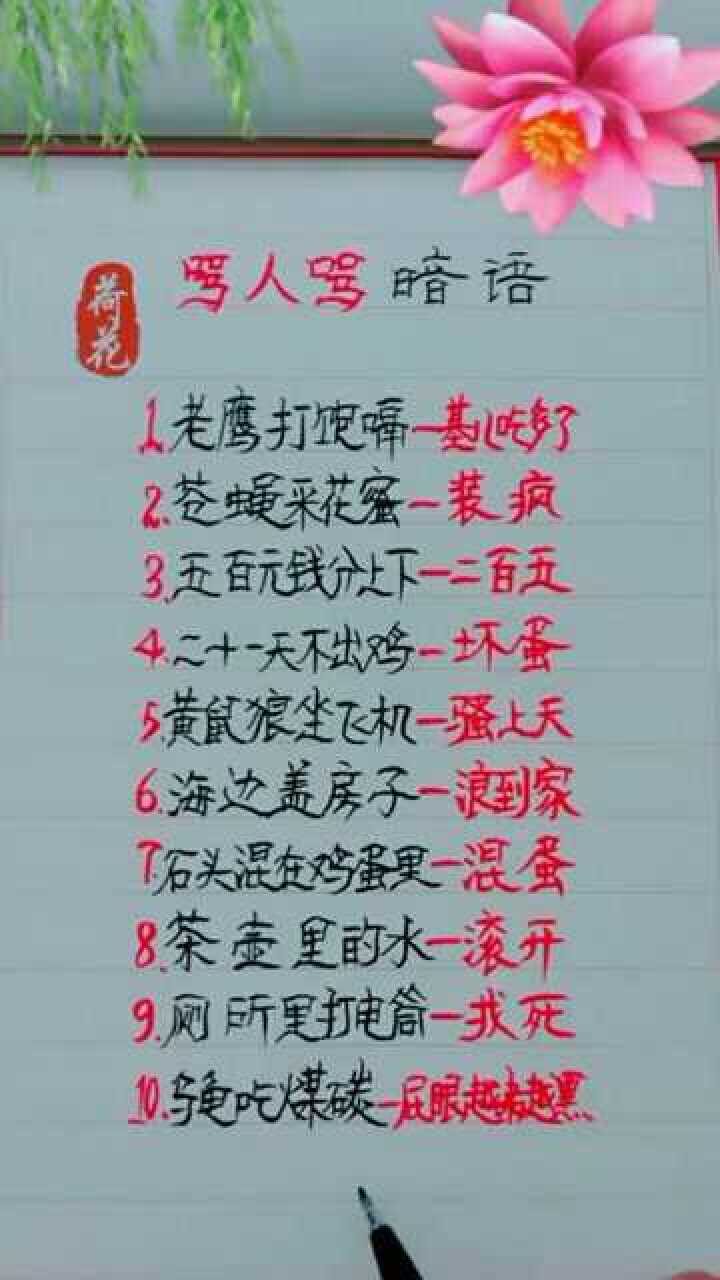 荷花
骂人骂暗语
1.老鹰打饱嗝—基吃多了
2.苍蝇采花蜜—装疯
3.五百元钱分上下—二百五
4.二十一天不出鸡—坏蛋
5.黄鼠狼坐飞机—骚上天
6.海边盖房子—浪到家
7.石头混在鸡蛋里—混蛋
8.茶壶里的水—滚开
9.厕所里打电筒—找死
10.乌龟吃煤碳—屁眼越来越黑